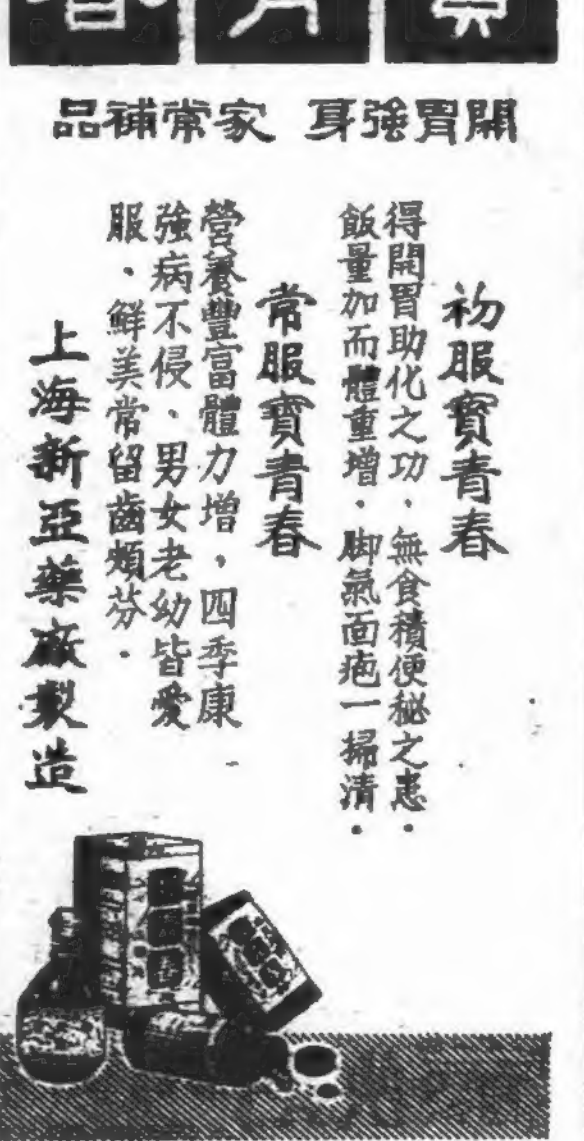 寶青春
開胃強身 家常補品
初服寶青春
得開胃助化之功、無食積便秘之患．
飯量加而體重增．脚氣面疱一掃清．
常服寶青春
營養豐富體力增，四季康
強病不侵、男女老幼皆愛
服．鮮美常留齒頰芬．
上海新亞藥廠製造